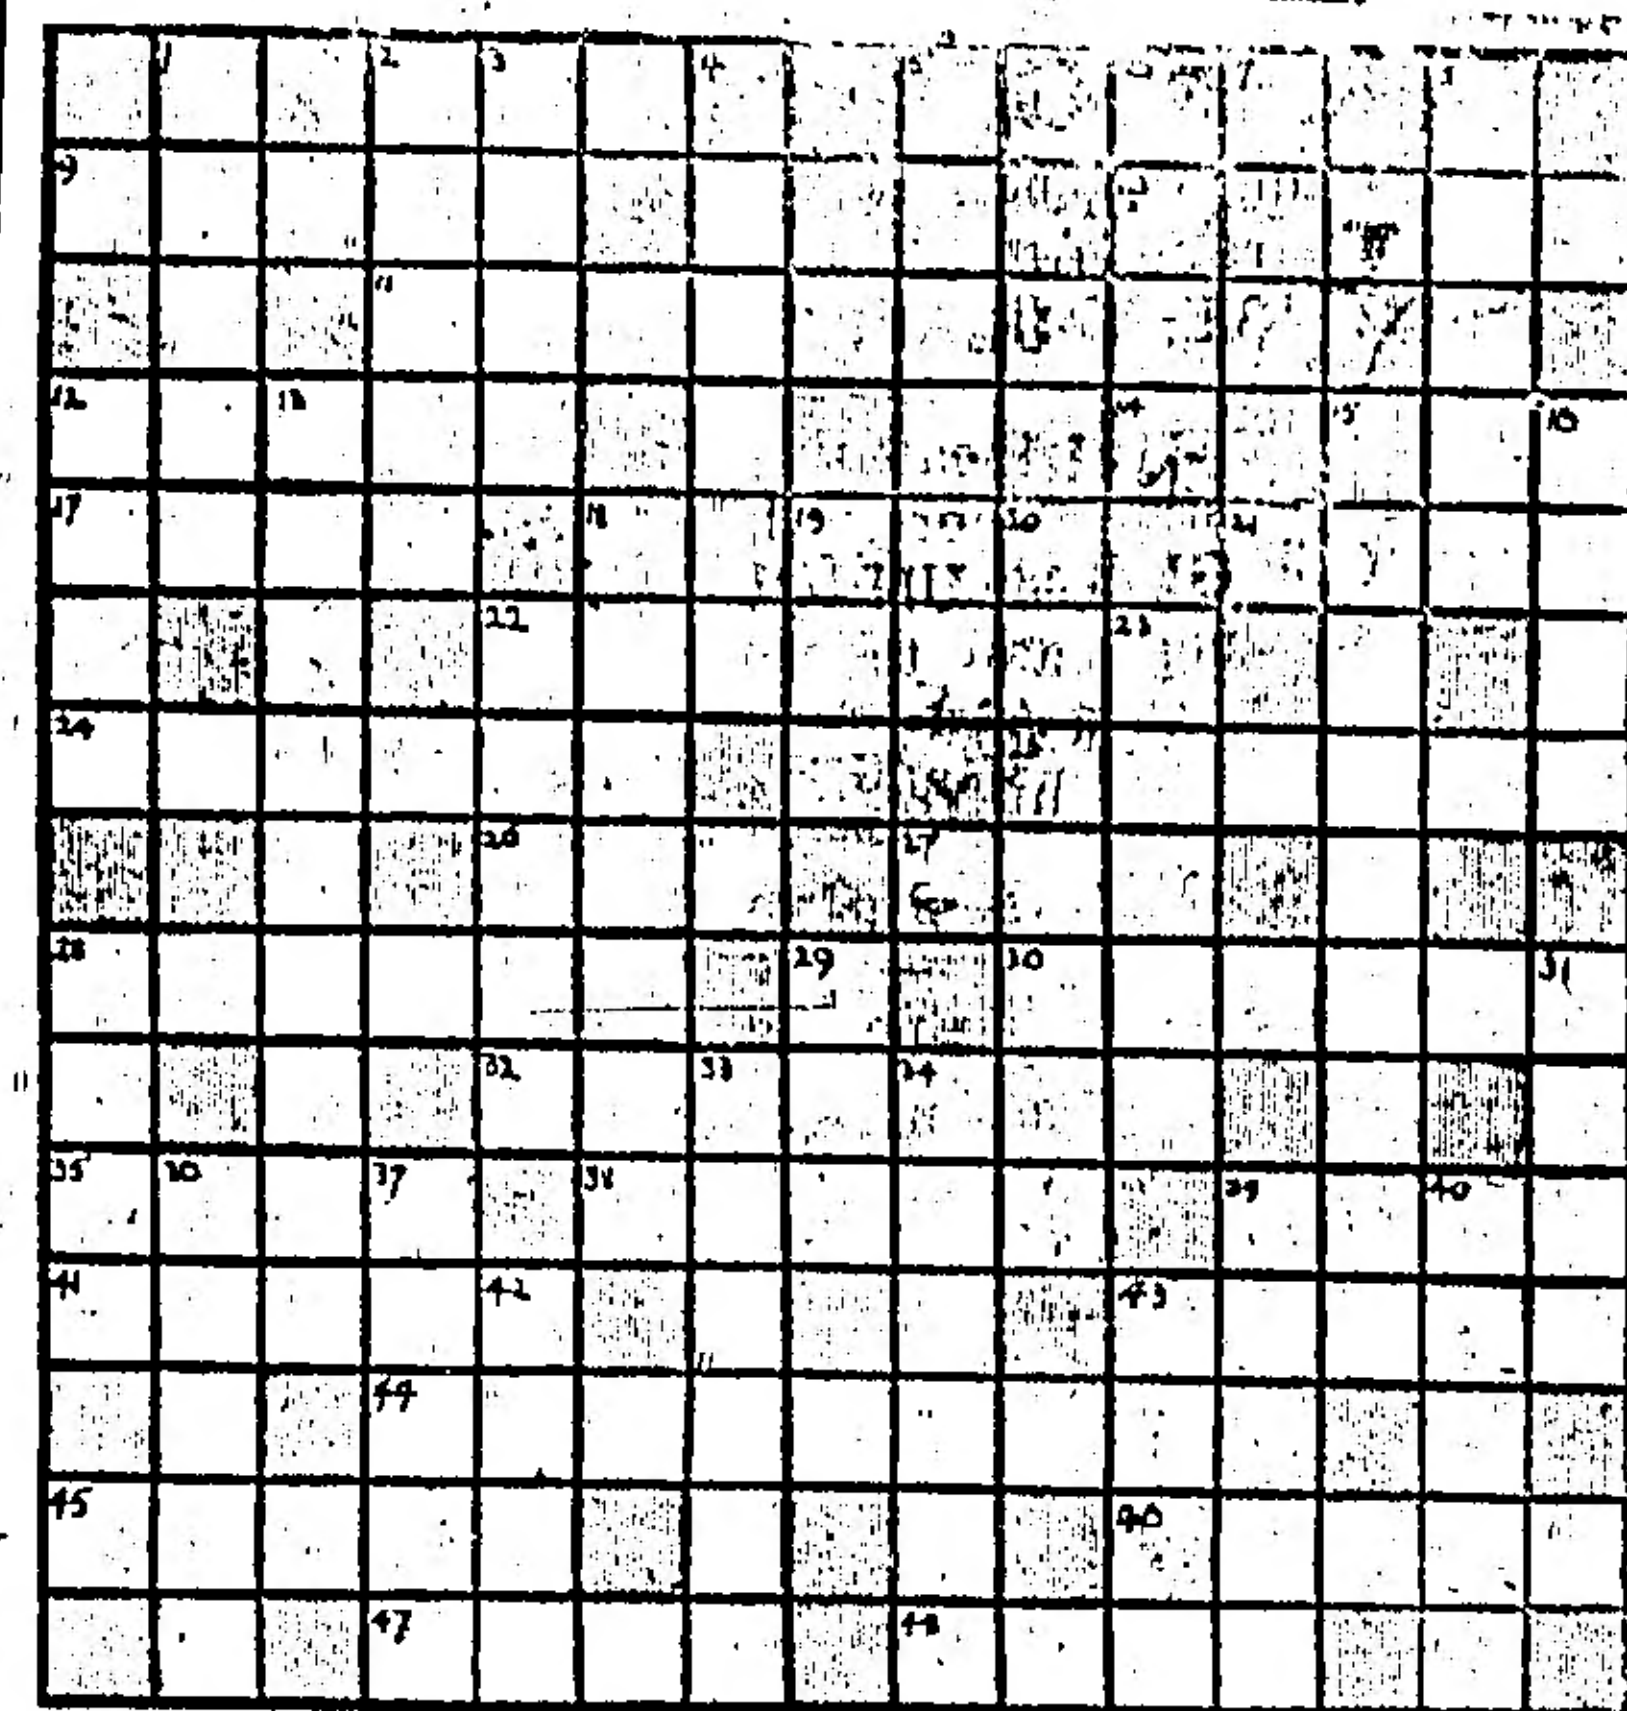 1 2 3 4 5 6 7 8
9
11
12 13 14 15 16
17 18 19 20 21
22 23
24 25
26 27
28 29 30 31
32 33 34
35 36 37 38 39 40
41 42 43
44
45 46
47 48